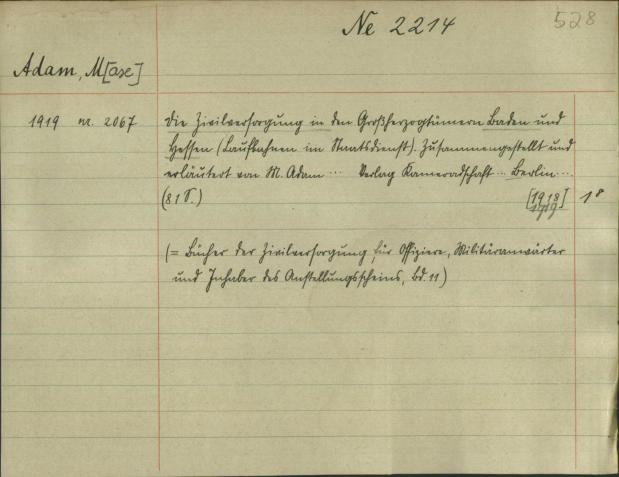 Ne 2214
528
Adam, M[ax]
1919 nr. 2067
Die Zivilversorgung in den Großherzogtümern Baden und
Hessen (Laufbahnen im Staatsdienst). Zusammengestellt und
erläutert von M. Adam ... Verlag Kameradschaft ... Berlin ...
(81 S.) [1918] 1 8
1919
(= Bücher der Zivilversorgung für Offiziere, Militäranwärter
und Inhaber des Anstellungsscheins, Bd. 11)